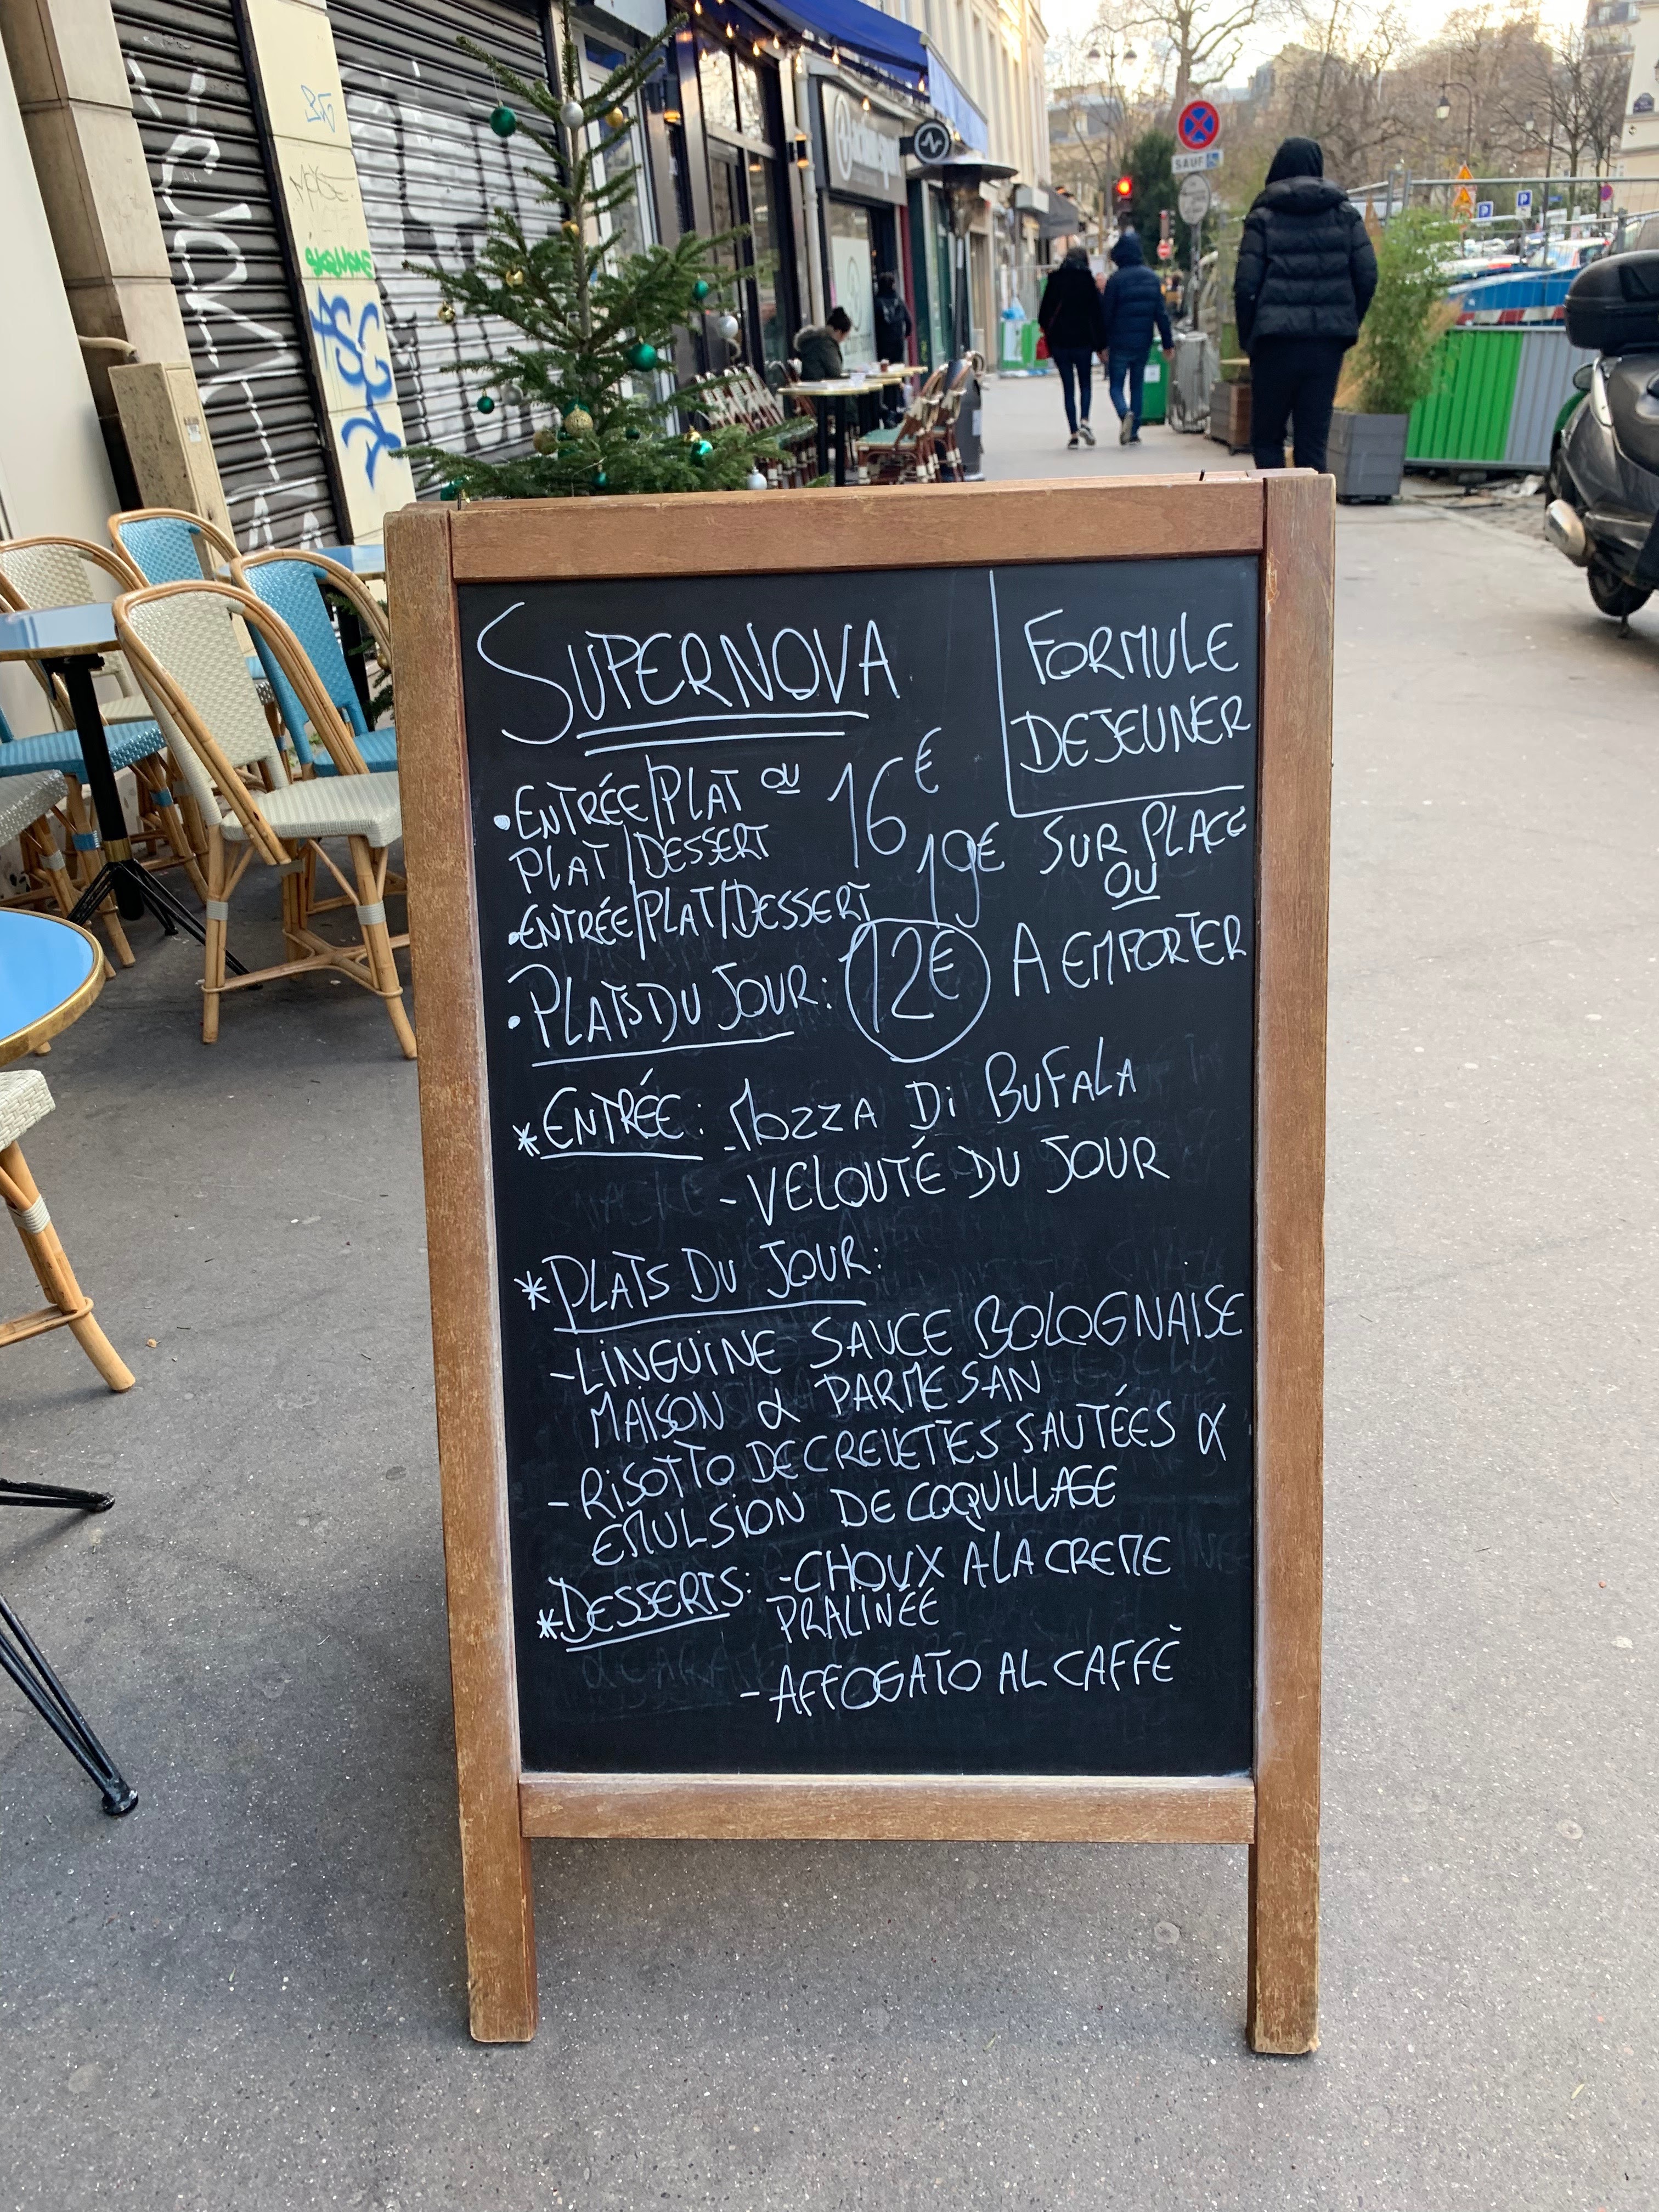 SUPERNOVA
FORMULE
DEJEUNER
• ENTRÉE/PLAT OU
PLAT/DESSERT
16€
• ENTRÉE/PLAT/DESSERT
19€
• PLATS DU JOUR: 12€
SUR PLACE
OU
A EMPORTER
* ENTRÉE: - MOZZA Di BUFALA
- VELOUTÉ DU JOUR
* PLATS DU JOUR:
- LINGUINE SAUCE BOLOGNAISE
MAISON & PARMESAN
- RISOTTO DE CREVETTES SAUTÉES &
EMULSION DE COQUILLAGE
* DESSERTS: - CHOUX À LA CREME
PRALINÉE
- AFFOGATO AL CAFFÈ
SAUF